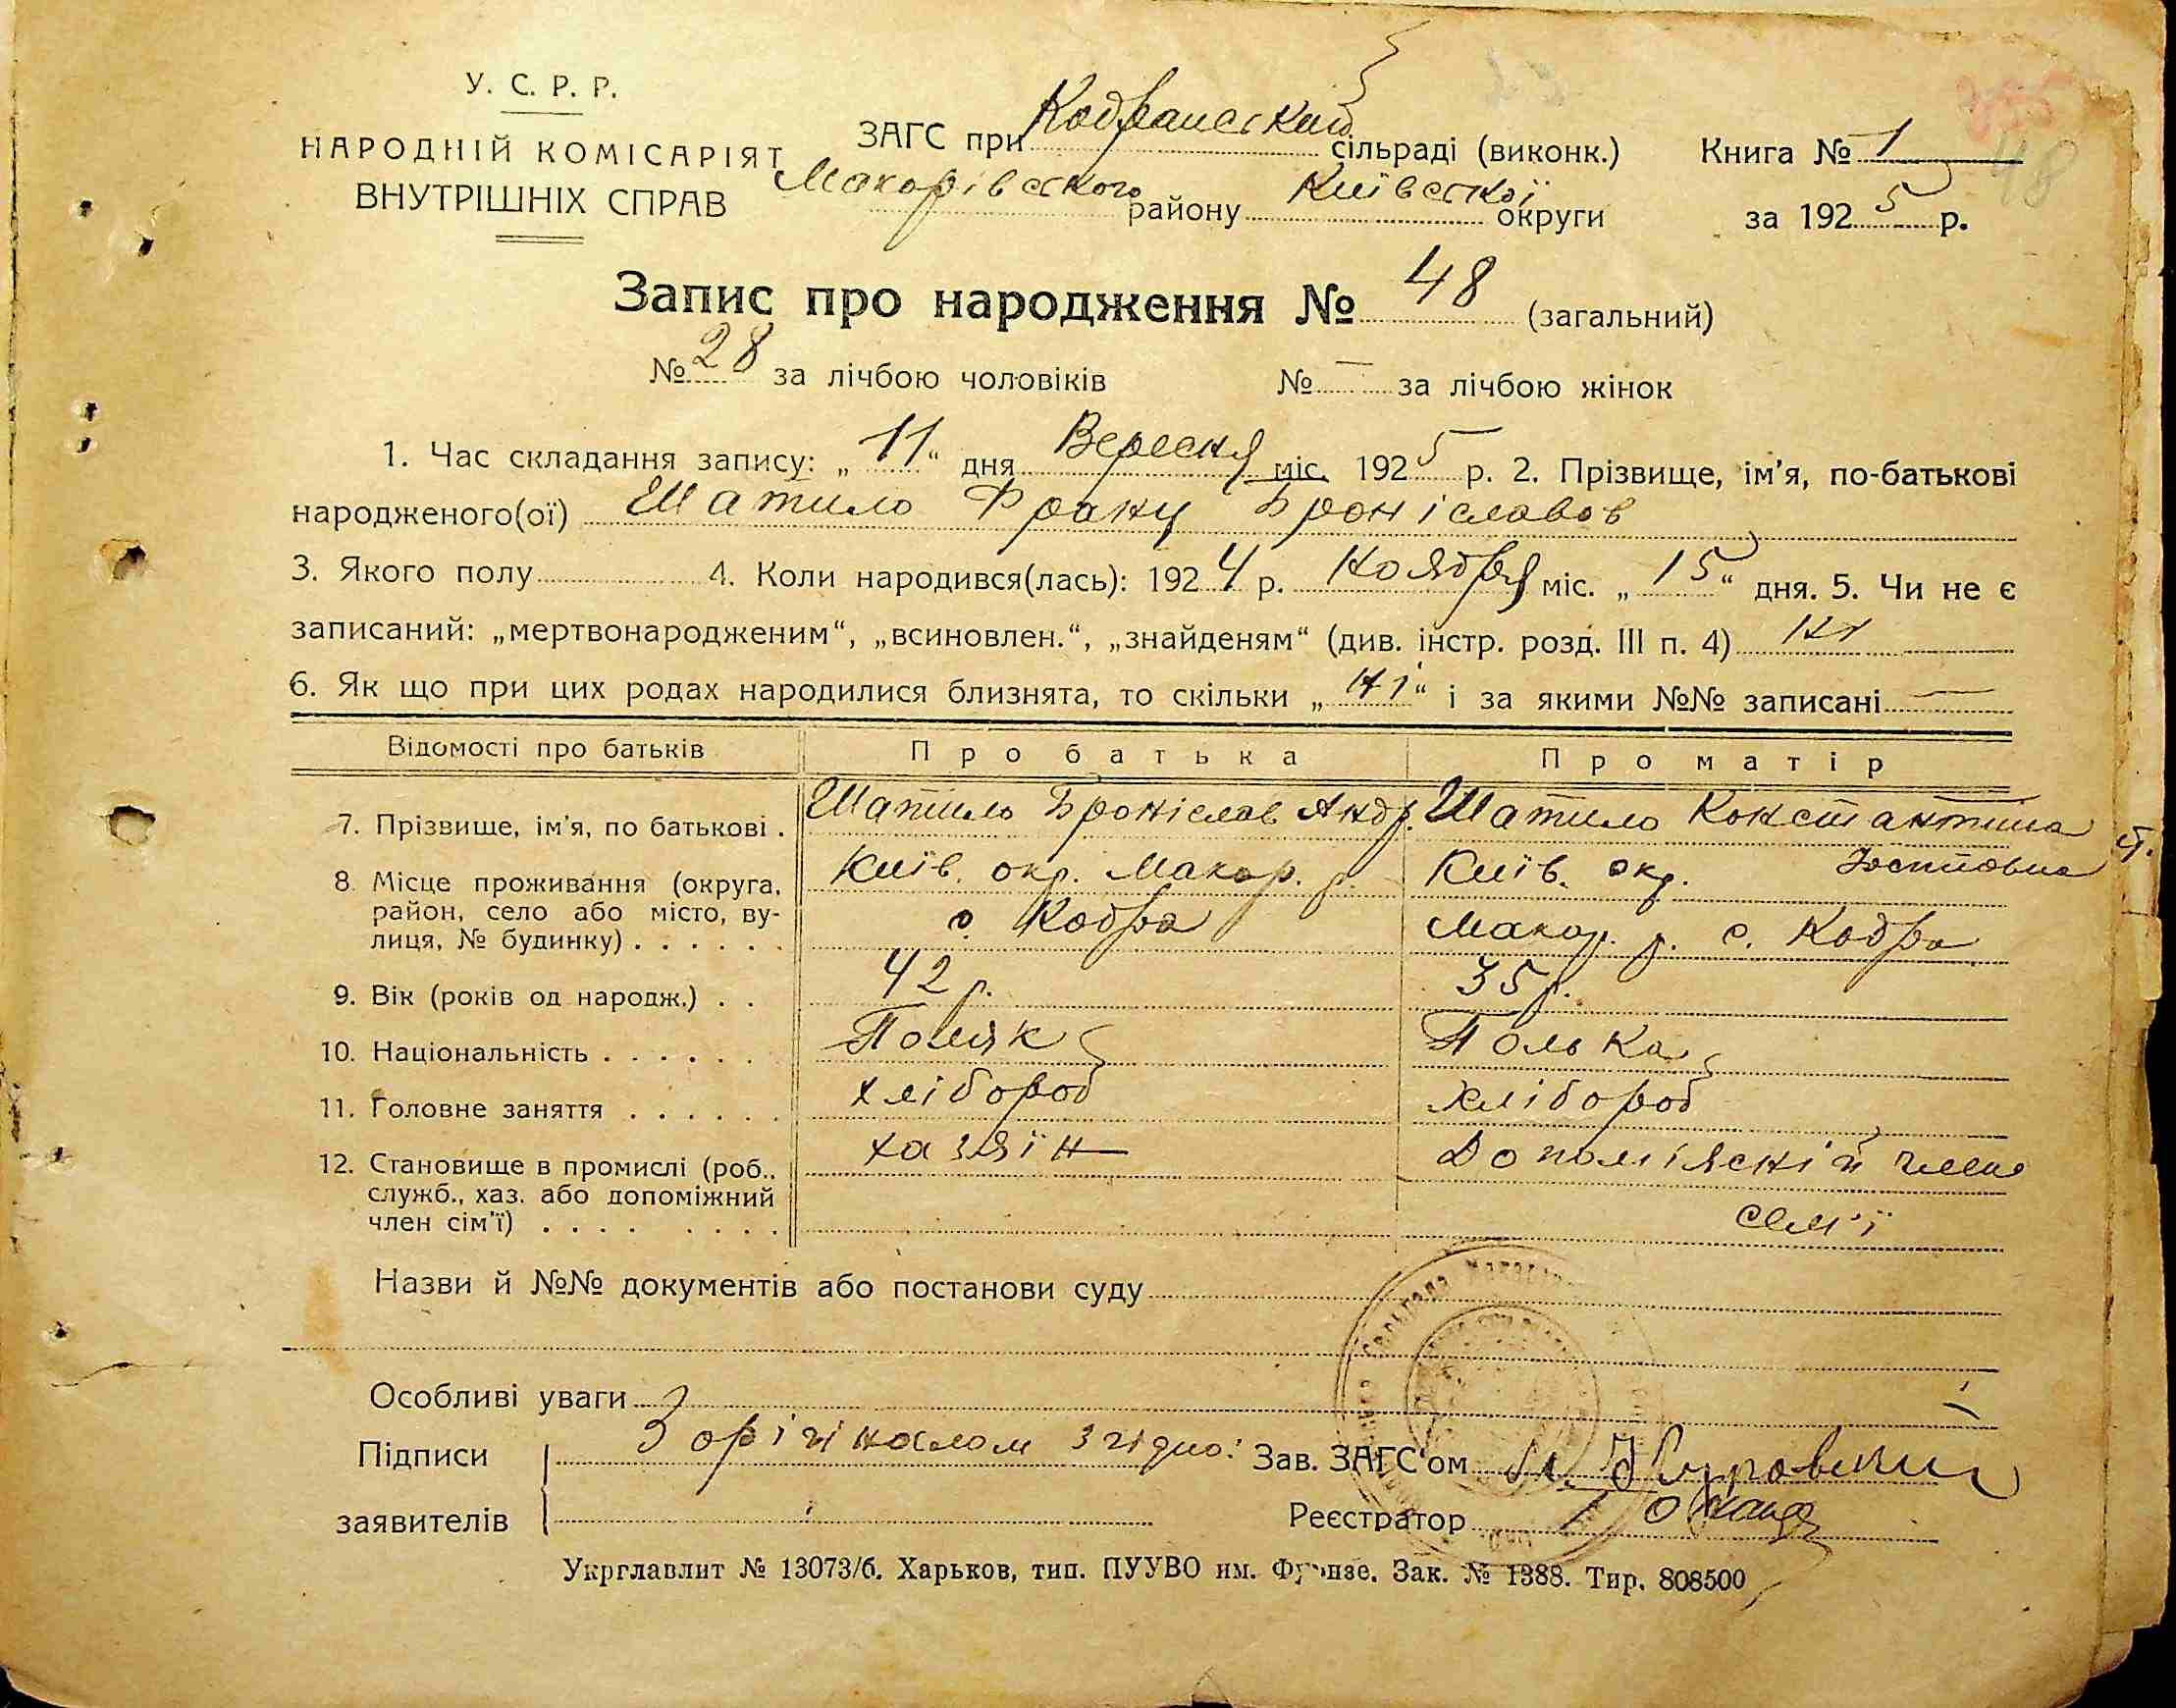 У. С. Р. Р.
НАРОДНІЙ КОМІСАРІЯТ
ВНУТРІШНІХ СПРАВ
ЗАГС при Кодранский сільраді (виконк.)
Макарівського району Київської округи
Книга № 1
48
за 1925 р.
Запис про народження № 48 (загальний)
№ 28 за лічбою чоловіків № — за лічбою жінок
1. Час складання запису: „11“ дня Вересня міс. 1925 р. 2. Прізвище, ім'я, по-батькові
народженого(ої) Шатило Франц Броніславов
3. Якого полу 4. Коли народився(лась): 1924 р. Ноября міс. „15“ дня. 5. Чи не є
записаний: „мертвонародженим“, „всиновлен.“, „знайденям“ (див. інстр. розд. III п. 4) Ні
6. Як що при цих родах народилися близнята, то скільки „Ні“ і за якими №№ записані —
Відомості про батьків Про батька Про матір
7. Прізвище, ім'я, по батькові . Шатило Броніслав Андр. Шатило Константина
8. Місце проживання (округа, район, село або місто, вулиця, № будинку) . . . . . . Київ. окр. Макар. р. с. Кодра Київ. окр. Макар. р. с. Кодра
9. Вік (років од народж.) . . 42 р. 35 р.
10. Національність . . . . . . Поляк Полька
11. Головне заняття . . . . . . хлібороб хлібороб
12. Становище в промислі (роб., служб., хаз. або допоміжний член сім'ї) . . . . . . . . хазяїн член сем'ї
Назви й №№ документів або постанови суду
Особливі уваги
Підписи З орігіналом згідно: Зав. ЗАГС'ом
заявителів Реєстратор
Укрглавлит № 13073/б. Харьков, тип. ПУУВО им. Фрунзе. Зак. № 1388. Тир. 808500